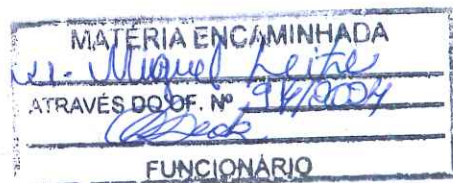 MATÉRIA ENCAMINHADA
Miguel Leite
ATRAVÉS DO OF. Nº 94/2004
FUNCIONÁRIO